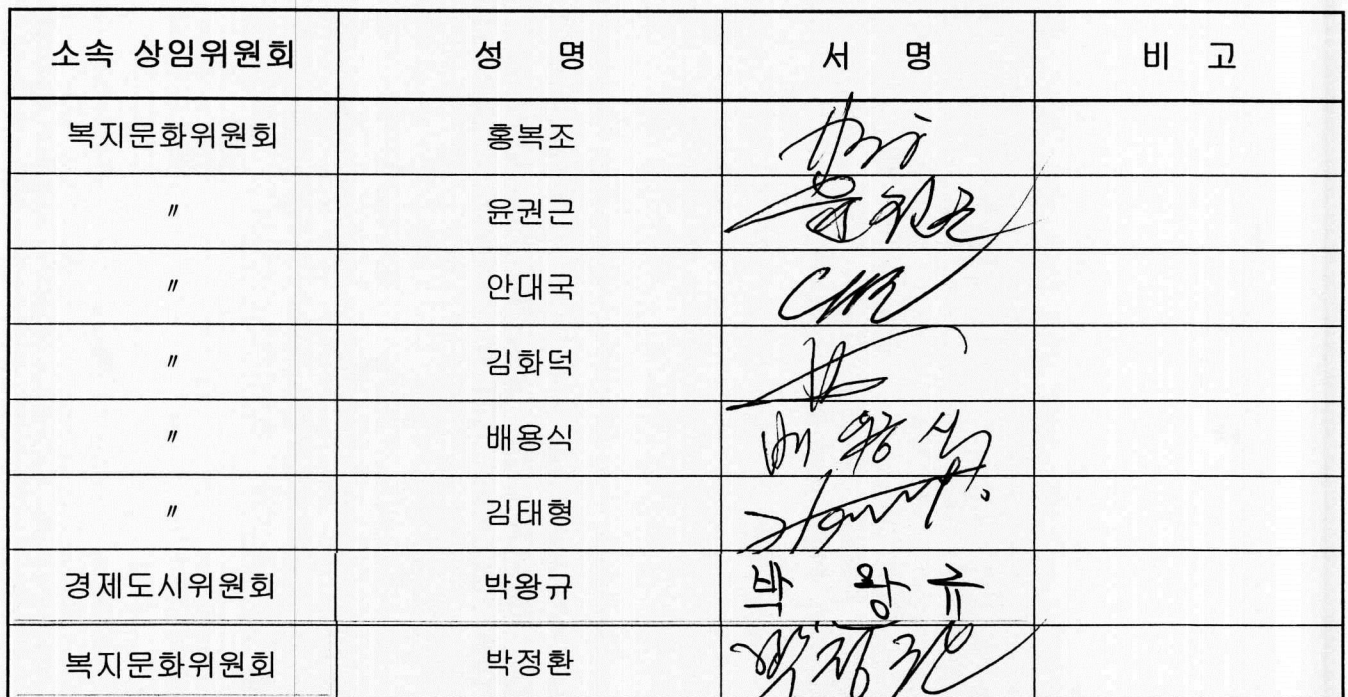 소속 상임위원회 성 명 서 명 비 고
복지문화위원회 홍복조
〃 윤권근 윤권근
〃 안대국
〃 김화덕
〃 배용식 배용식
〃 김태형
경제도시위원회 박왕규 박왕규
복지문화위원회 박정환 박정환